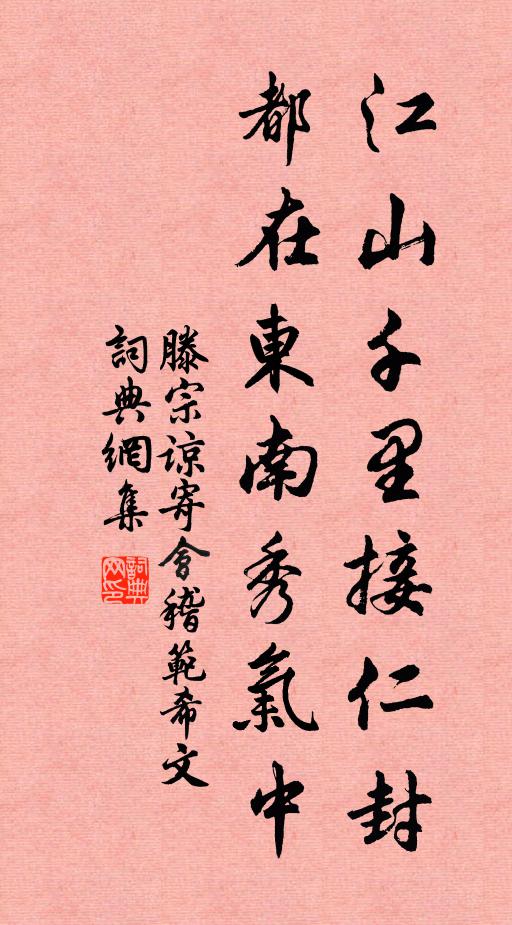 江山千里接仁封
都在東南秀氣中
滕宗諒寄會稽範希文
詞典網集
詞典网印